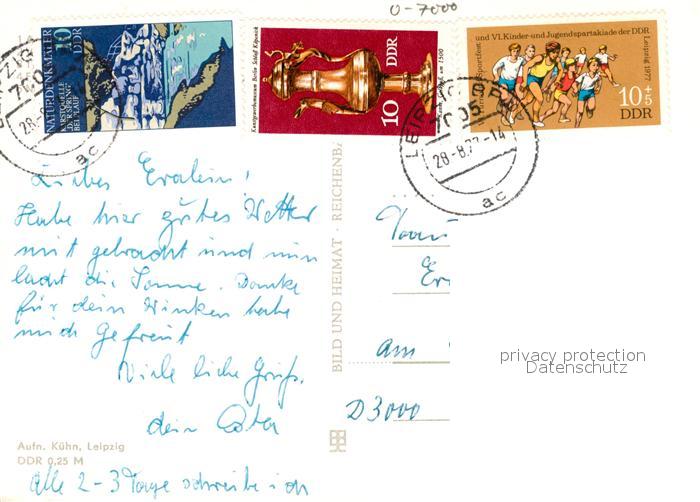 0-7000
NATURDENKMÄLER
10
DDR
KARSTQUELLE
BEI PLAUE
Kunstgewerbemuseum Berlin Schloß Köpenick
um 1500
10 DDR
und VI. Kinder- und Jugendspartakiade der DDR
Leipzig 1977
10+5
DDR
LEIPZIG
28-8.77-14
7005
ac
ac
Liebes Evalein!
Habe hier gutes Wetter
mit gebracht und nun
lacht die Sonne. Danke
für dein Winken habe
mich gefreut
Viele liebe Grüße.
dein
Alle 2-3 Tage schreibe ich
Aufn. Kühn, Leipzig
DDR 0,25 M
BILD UND HEIMAT · REICHENBA
Frau
Er
am
D3000
privacy protection
Datenschutz